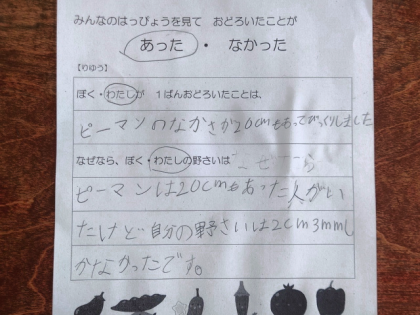 みんなのはっぴょうを見て おどろいたことが
あった ・ なかった
【りゆう】
ぼく・わたしが 1ばんおどろいたことは、
ピーマンのながさが20cmもあってびっくりしました
なぜなら、ぼく・わたしの野さいは
ピーマンは20cmもあった人がい
たけど自分の野さいは2cm3mmし
かなかったです。